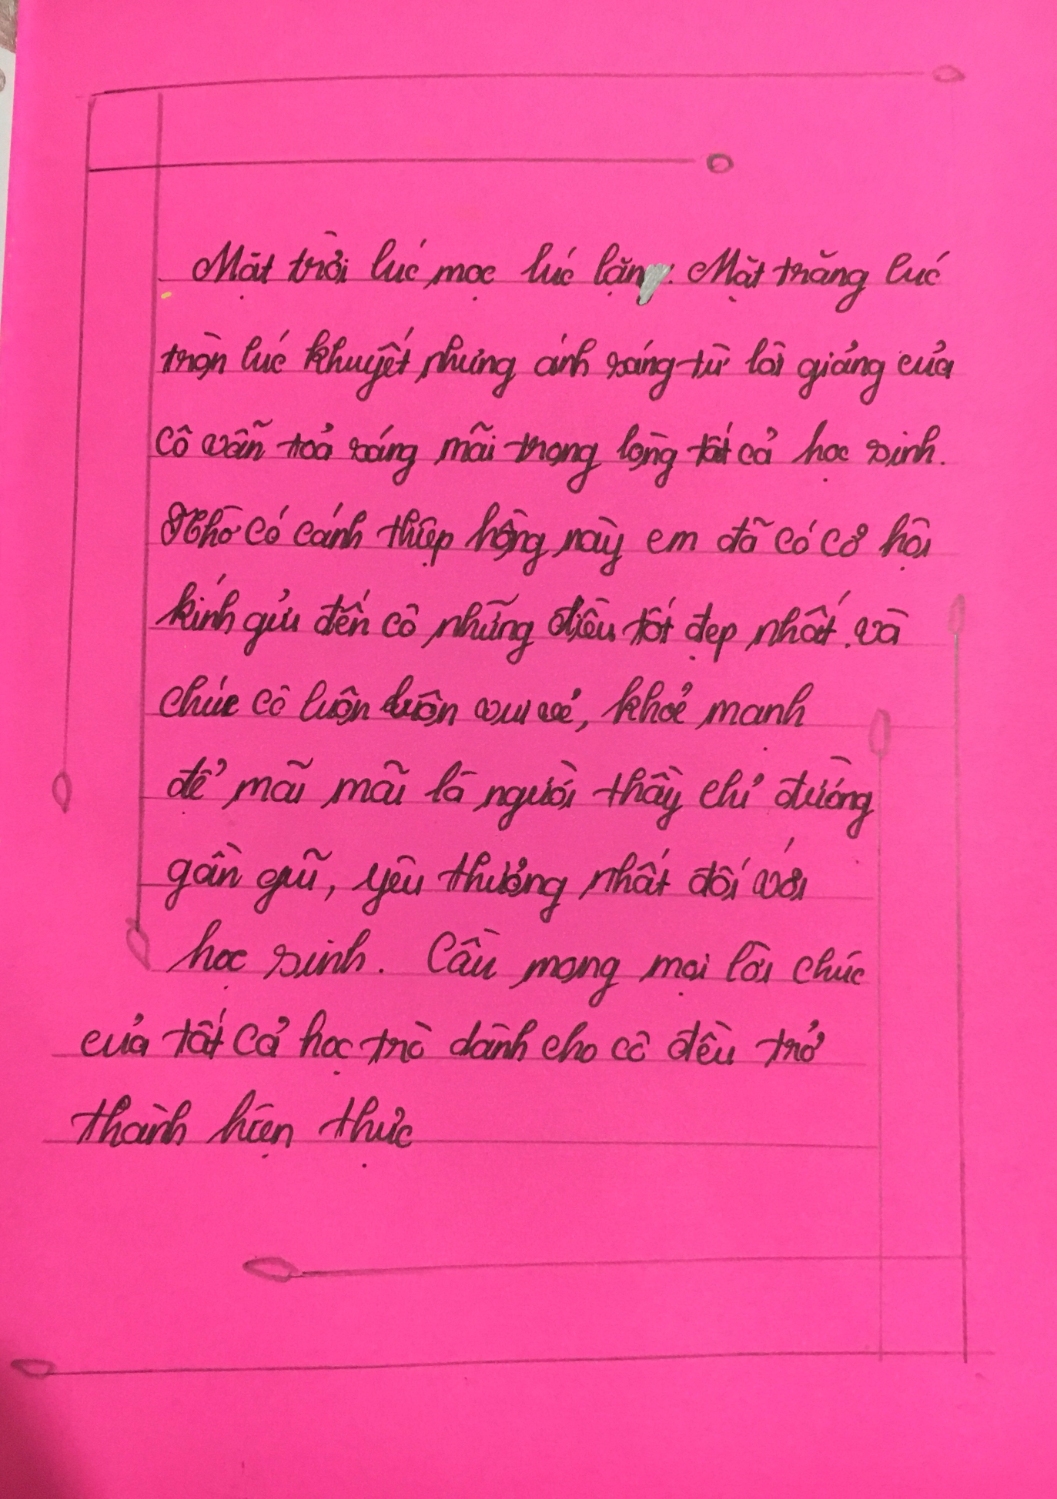 Mặt trời lúc mọc lúc lặn. Mặt trăng lúc
tròn lúc khuyết nhưng ánh sáng từ lời giảng của
cô vẫn toả sáng mãi trong lòng tất cả học sinh.
Nhờ có cánh thiệp hồng này em đã có cơ hội
kính gửi đến cô những điều tốt đẹp nhất. và
chúc cô luôn luôn vui vẻ, khoẻ mạnh
để mãi mãi là người thầy chỉ đường
gần gũi, yêu thương nhất đối với
học sinh. Cầu mong mọi lời chúc
của tất cả học trò dành cho cô đều trở
thành hiện thực